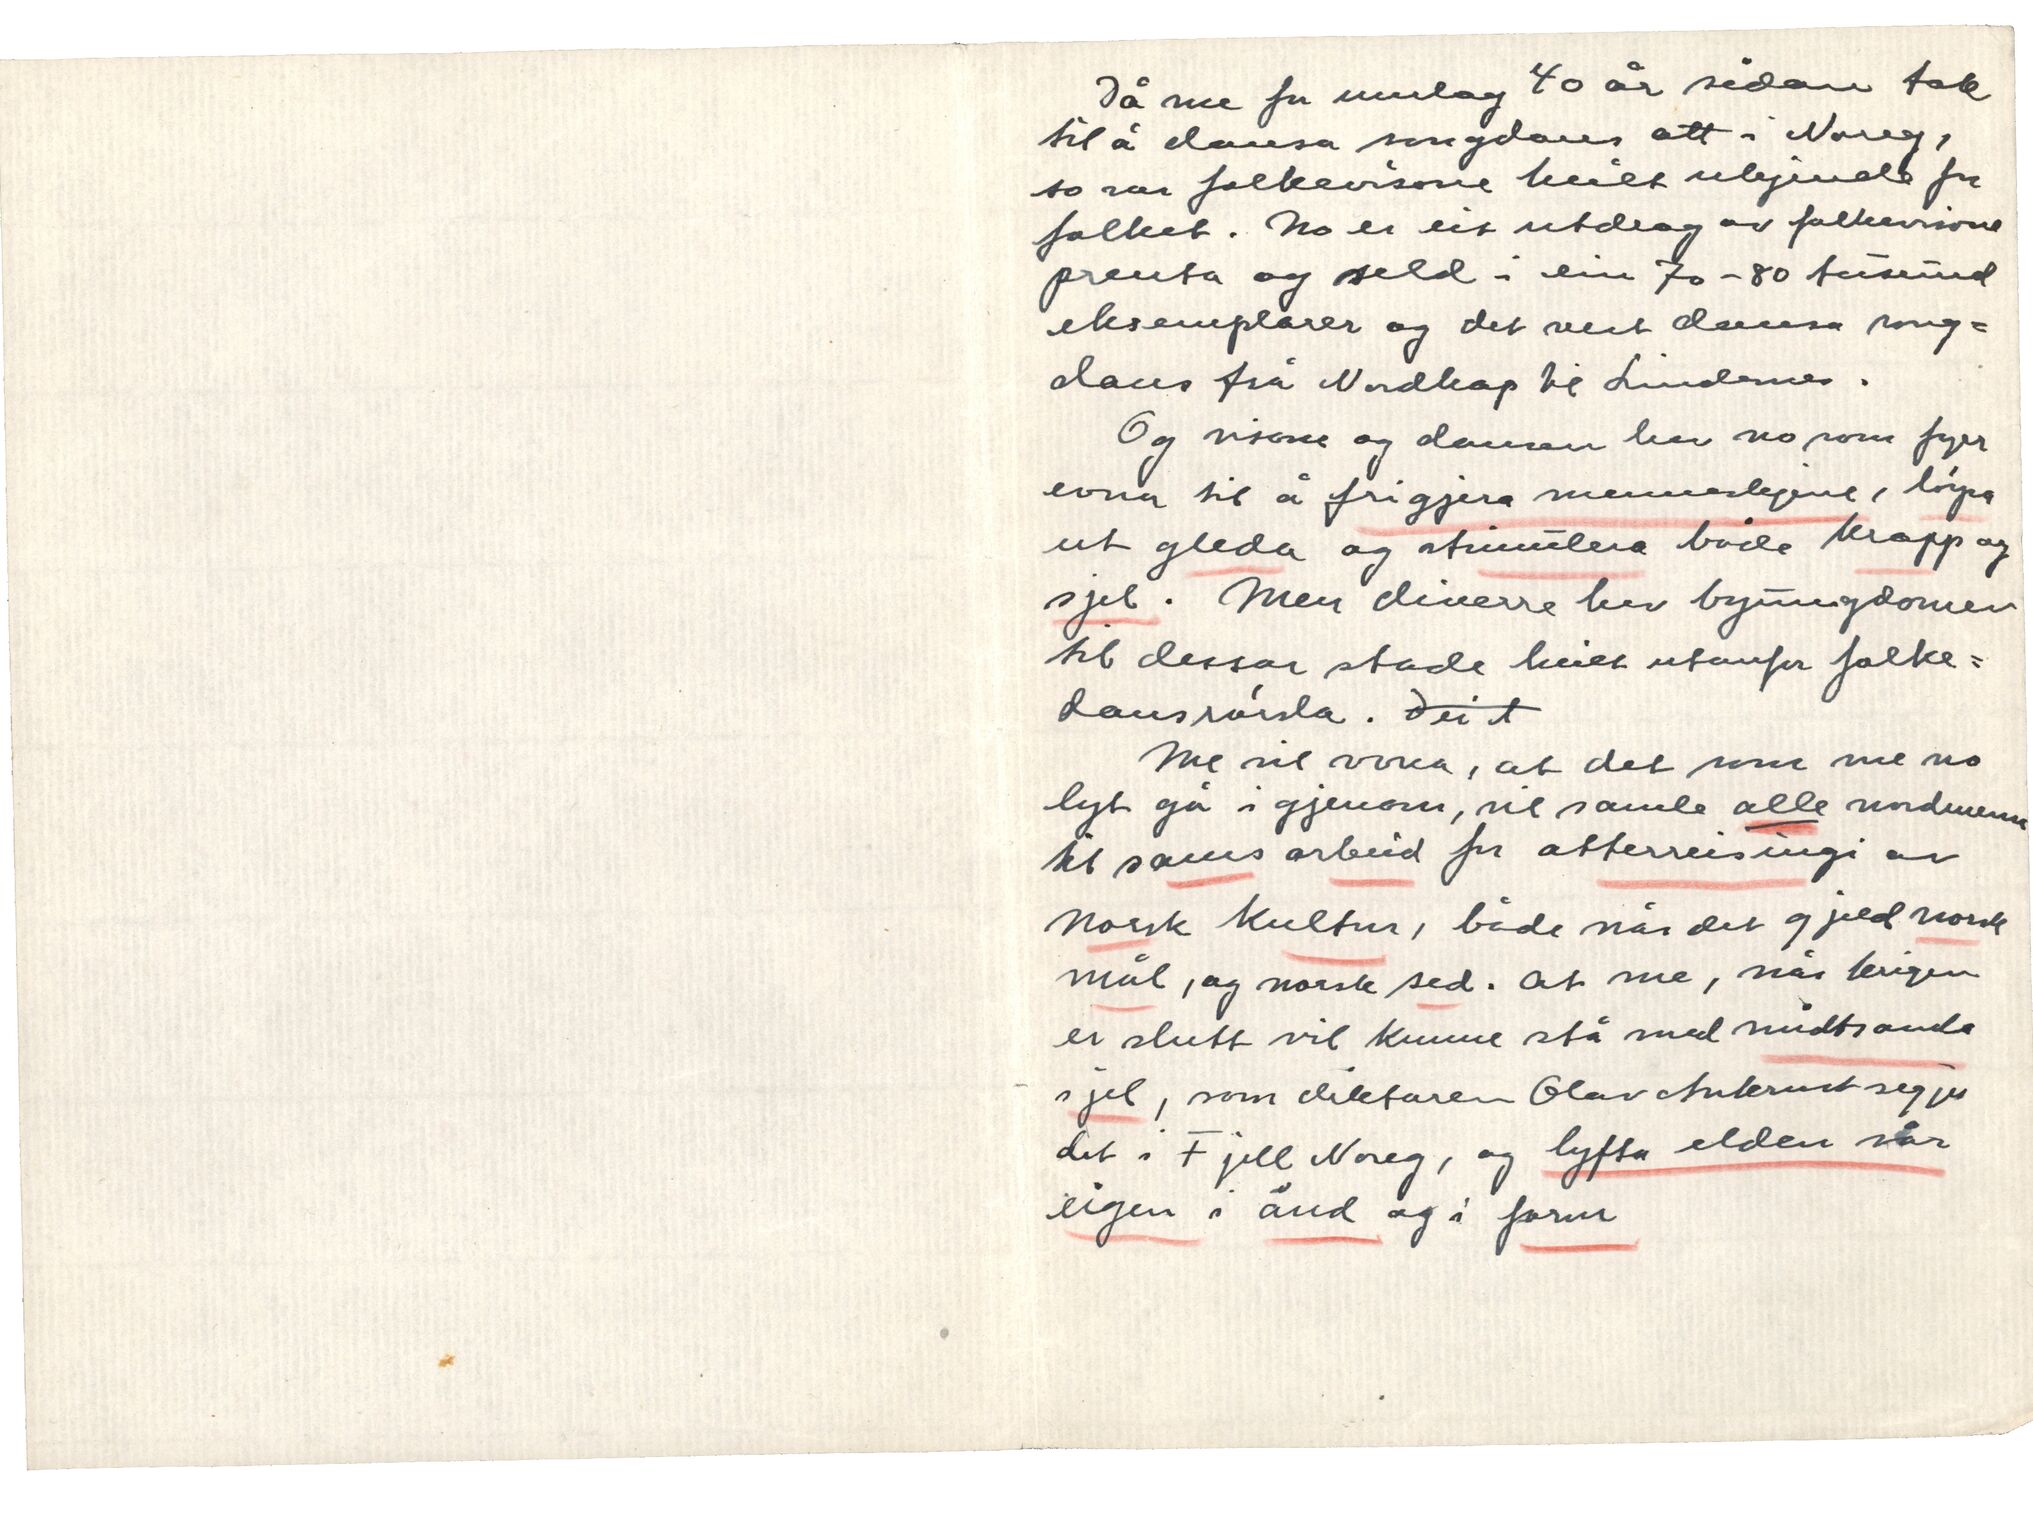 Då me for umlag 40 år sidan tok
til å dansa songdans att i Noreg,
so var folkevisone heilt ukjende for
folket. No er eit utdrag av folkevisone
prenta og seld i ein 70-80 tusund
eksemplarer og det vert dansa song=
dans frå Nordkap til Lindesnes.
Og visone og dansen hev no som fyrr
evna til å frigjera menneskjene, løysa
ut gleda og stimulera både kropp og
sjel. Men diverre hev byungdomen
til dessar stade heilt utanfor folke=
dansrørsla. Dei t
Me vil vona, at det som me no
lyt gå i gjenom, vil samle alle nordmenn
til sams arbeid for atterreisingi av
Norsk kultur, både når det gjeld norsk
mål, og norsk sed. At me, når krigen
er slutt vil kunne stå med midtsanda
sjel, som diktaren Olav Aukrust segjer
det i Fjell Noreg, og lyfta elden vår
eigen i ånd og i form